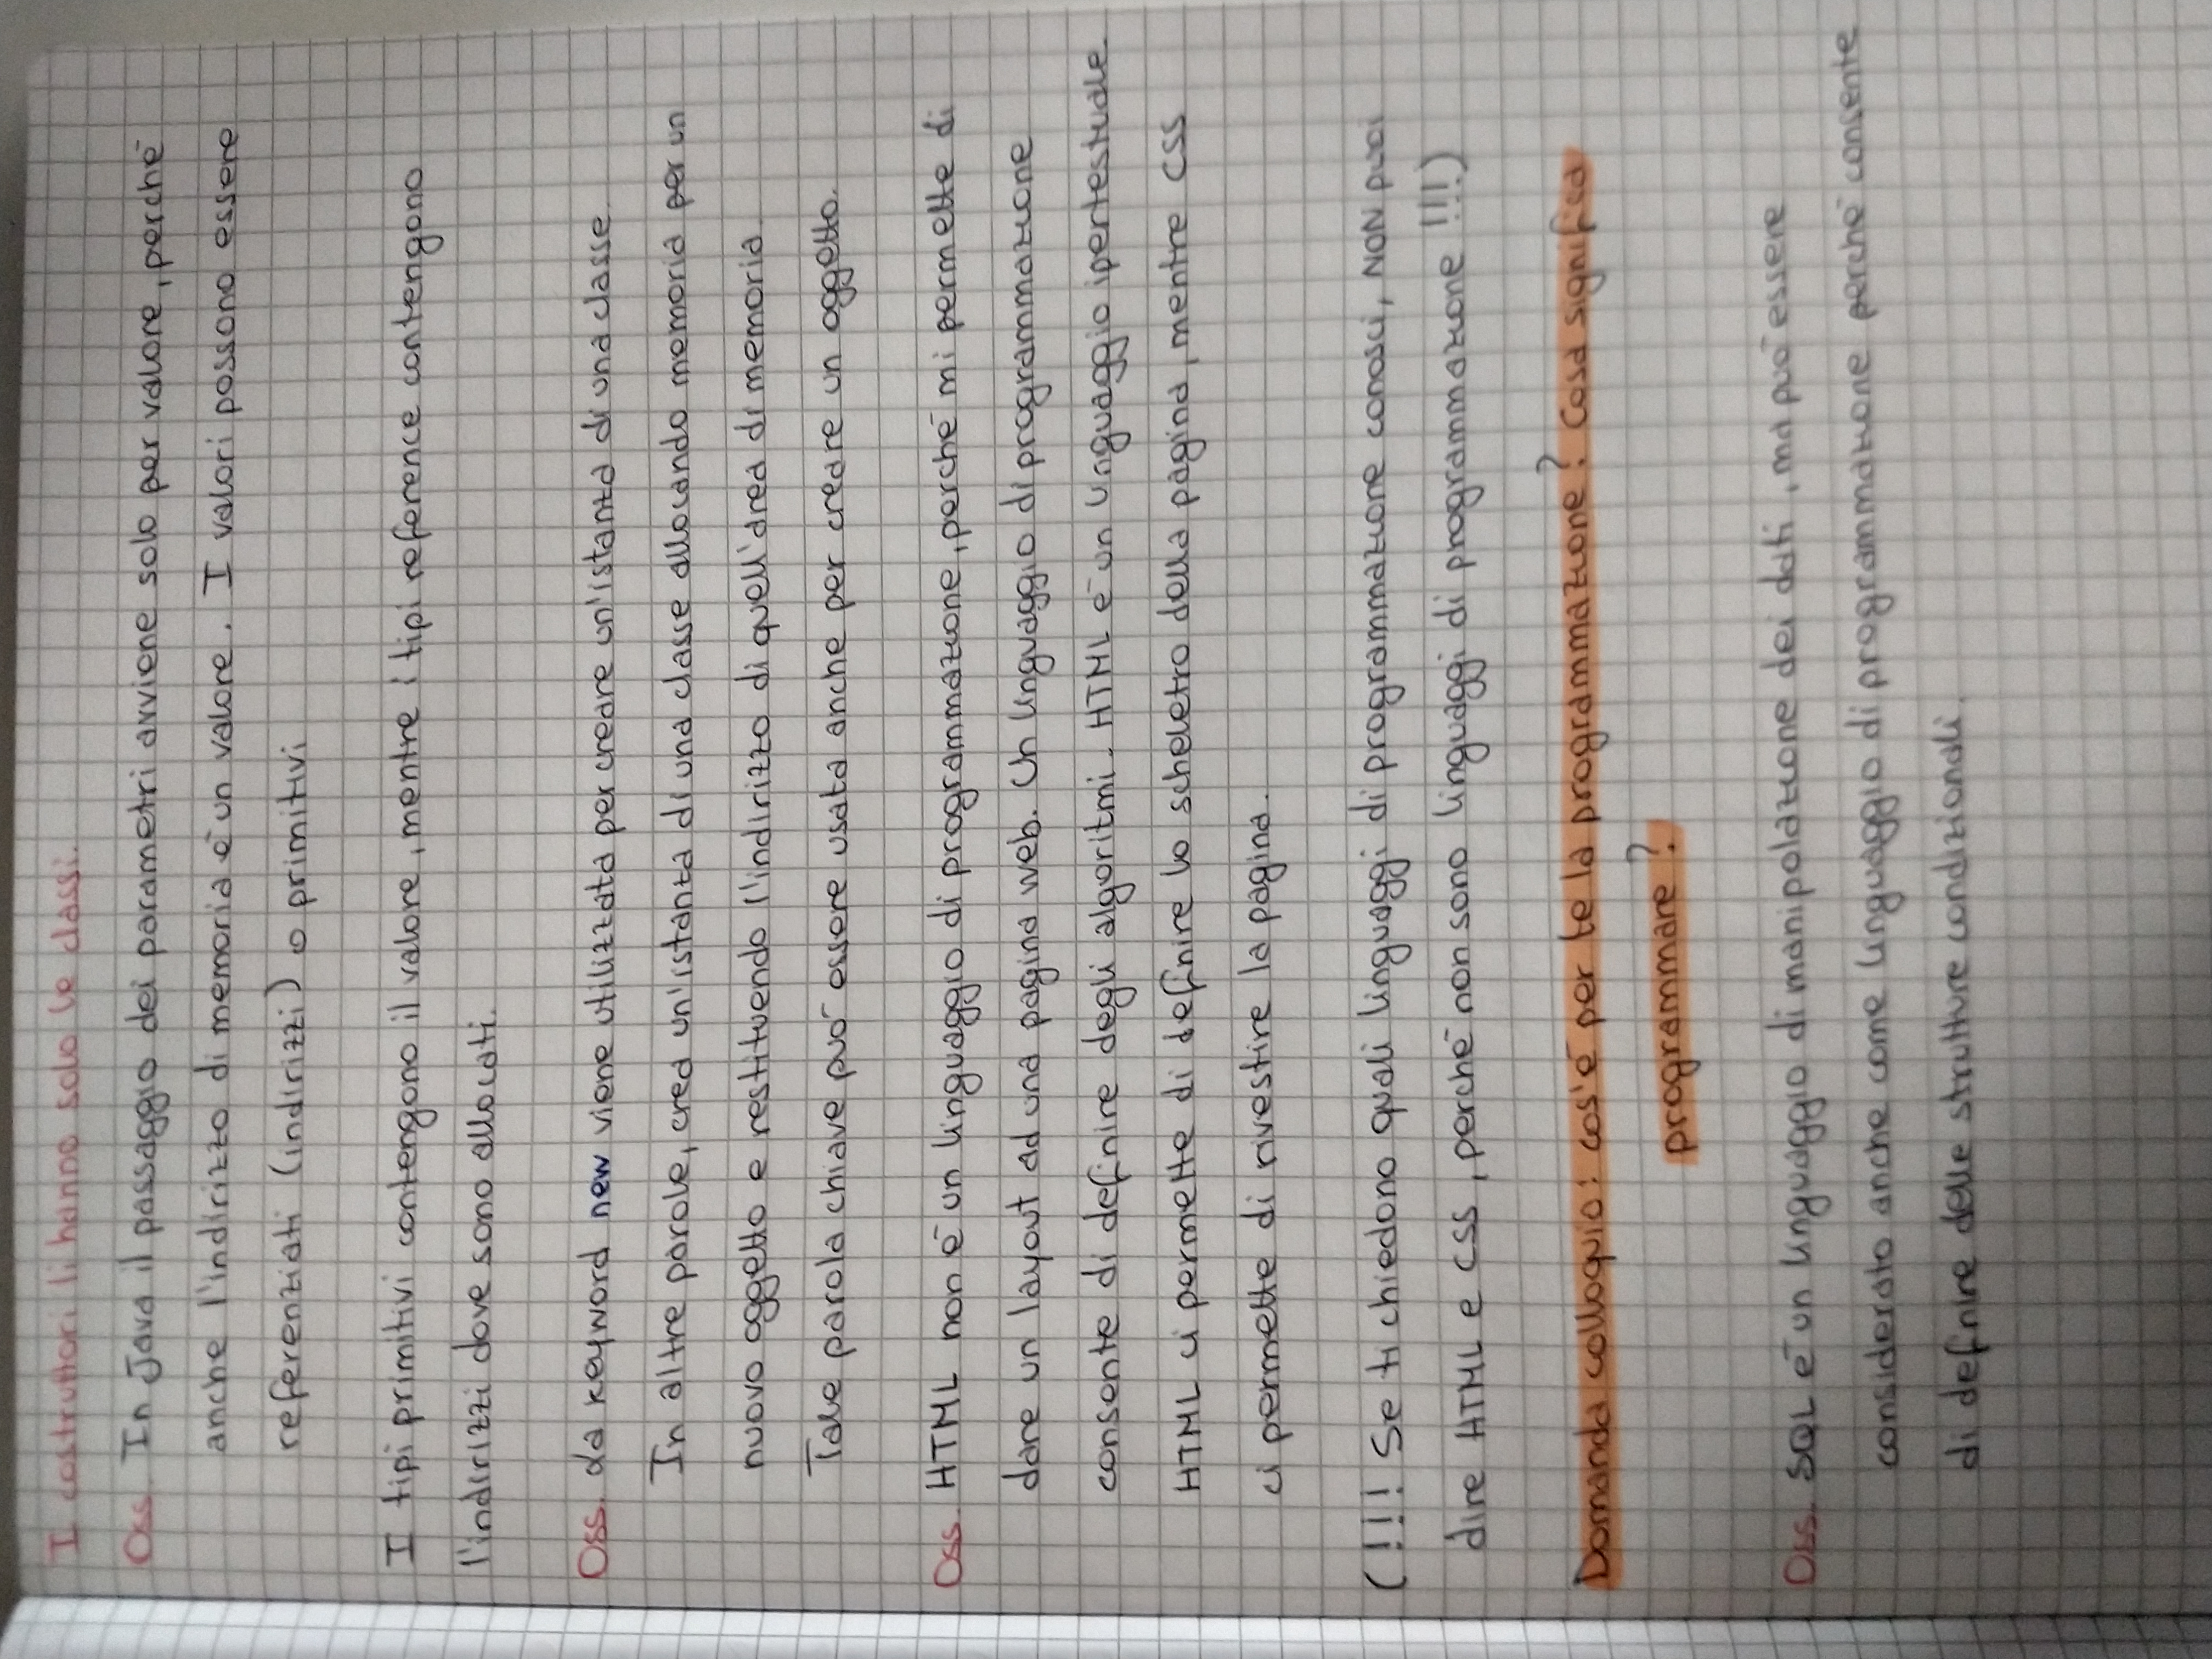 I costruttori li hanno solo le classi.
Oss. In Java il passaggio dei parametri avviene solo per valore, perché
anche l'indirizzo di memoria è un valore. I valori possono essere
referenziati (indirizzi) o primitivi
I tipi primitivi contengono il valore, mentre i tipi reference contengono
l'indirizzi dove sono allocati.
Oss. La keyword new viene utilizzata per creare un'istanza di una classe.
In altre parole, crea un'istanza di una classe allocando memoria per un
nuovo oggetto e restituendo l'indirizzo di quell'area di memoria.
Tale parola chiave può essere usata anche per creare un oggetto.
Oss. HTML non è un linguaggio di programmazione, perché mi permette di
dare un layout ad una pagina web. Un linguaggio di programmazione
consente di definire degli algoritmi. HTML è un linguaggio ipertestuale.
HTML ci permette di definire lo scheletro della pagina, mentre CSS
ci permette di rivestire la pagina.
(!!! Se ti chiedono quali linguaggi di programmazione conosci, NON puoi
dire HTML e CSS, perché non sono linguaggi di programmazione !!!)
Domanda colloquio: cos'è per te la programmazione? Cosa significa
programmare?
Oss. SQL è un linguaggio di manipolazione dei dati, ma può essere
considerato anche come linguaggio di programmazione perché consente
di definire delle strutture condizionali.